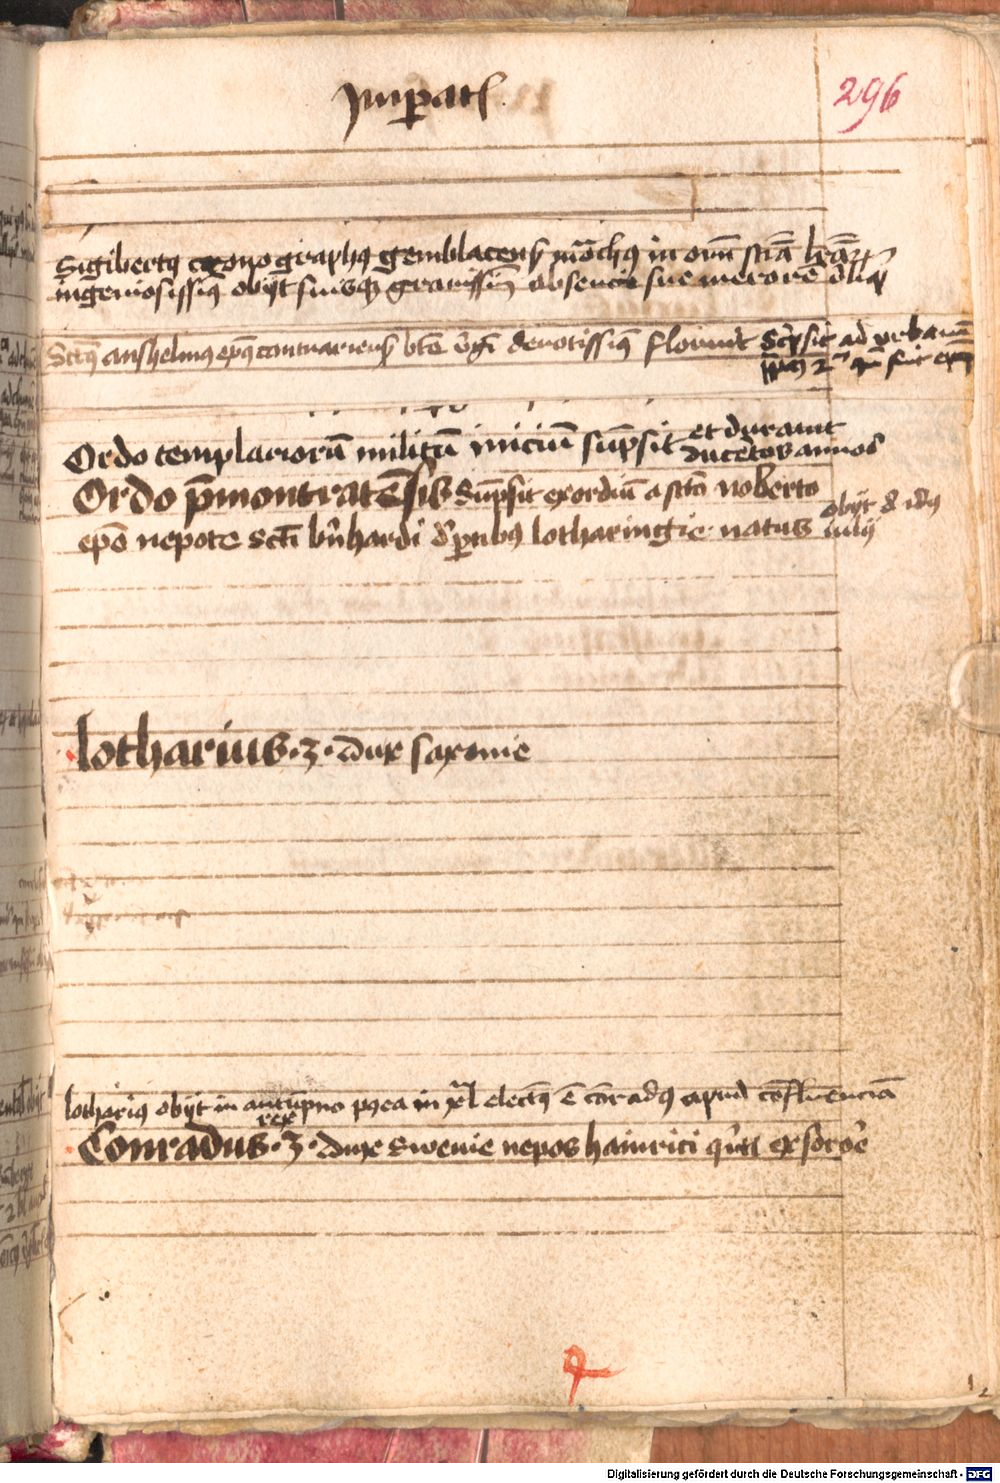 Imperatores
296
Sigibertus cronographus gemblacensis monachus in omni scientia litterarum
ingeniosissimus obijt suisque gravissimum absencie sue merorem
Sanctus anshelmus episcopus cantuariensis beate virgini devotissimus floruit Scripsit ad urbanum
papam 2m
Ordo templariorum militum inicium sumpsit et duravit
ducentos annos
Ordo premonstratensis Sumpsit exordium a sancto noberto
episcopo nepote Sancti bernhardi de partibus lotharingie natus obijt 8 idus
iulij
lotharius · 3 · dux saxonie
lotharius obijt in autumpno postea in xl electus est conradus apud confluenciam
rex
Conradus · 3 · dux Swevie nepos hainrici quinti ex sorore
Digitalisierung gefördert durch die Deutsche Forschungsgemeinschaft - DFG